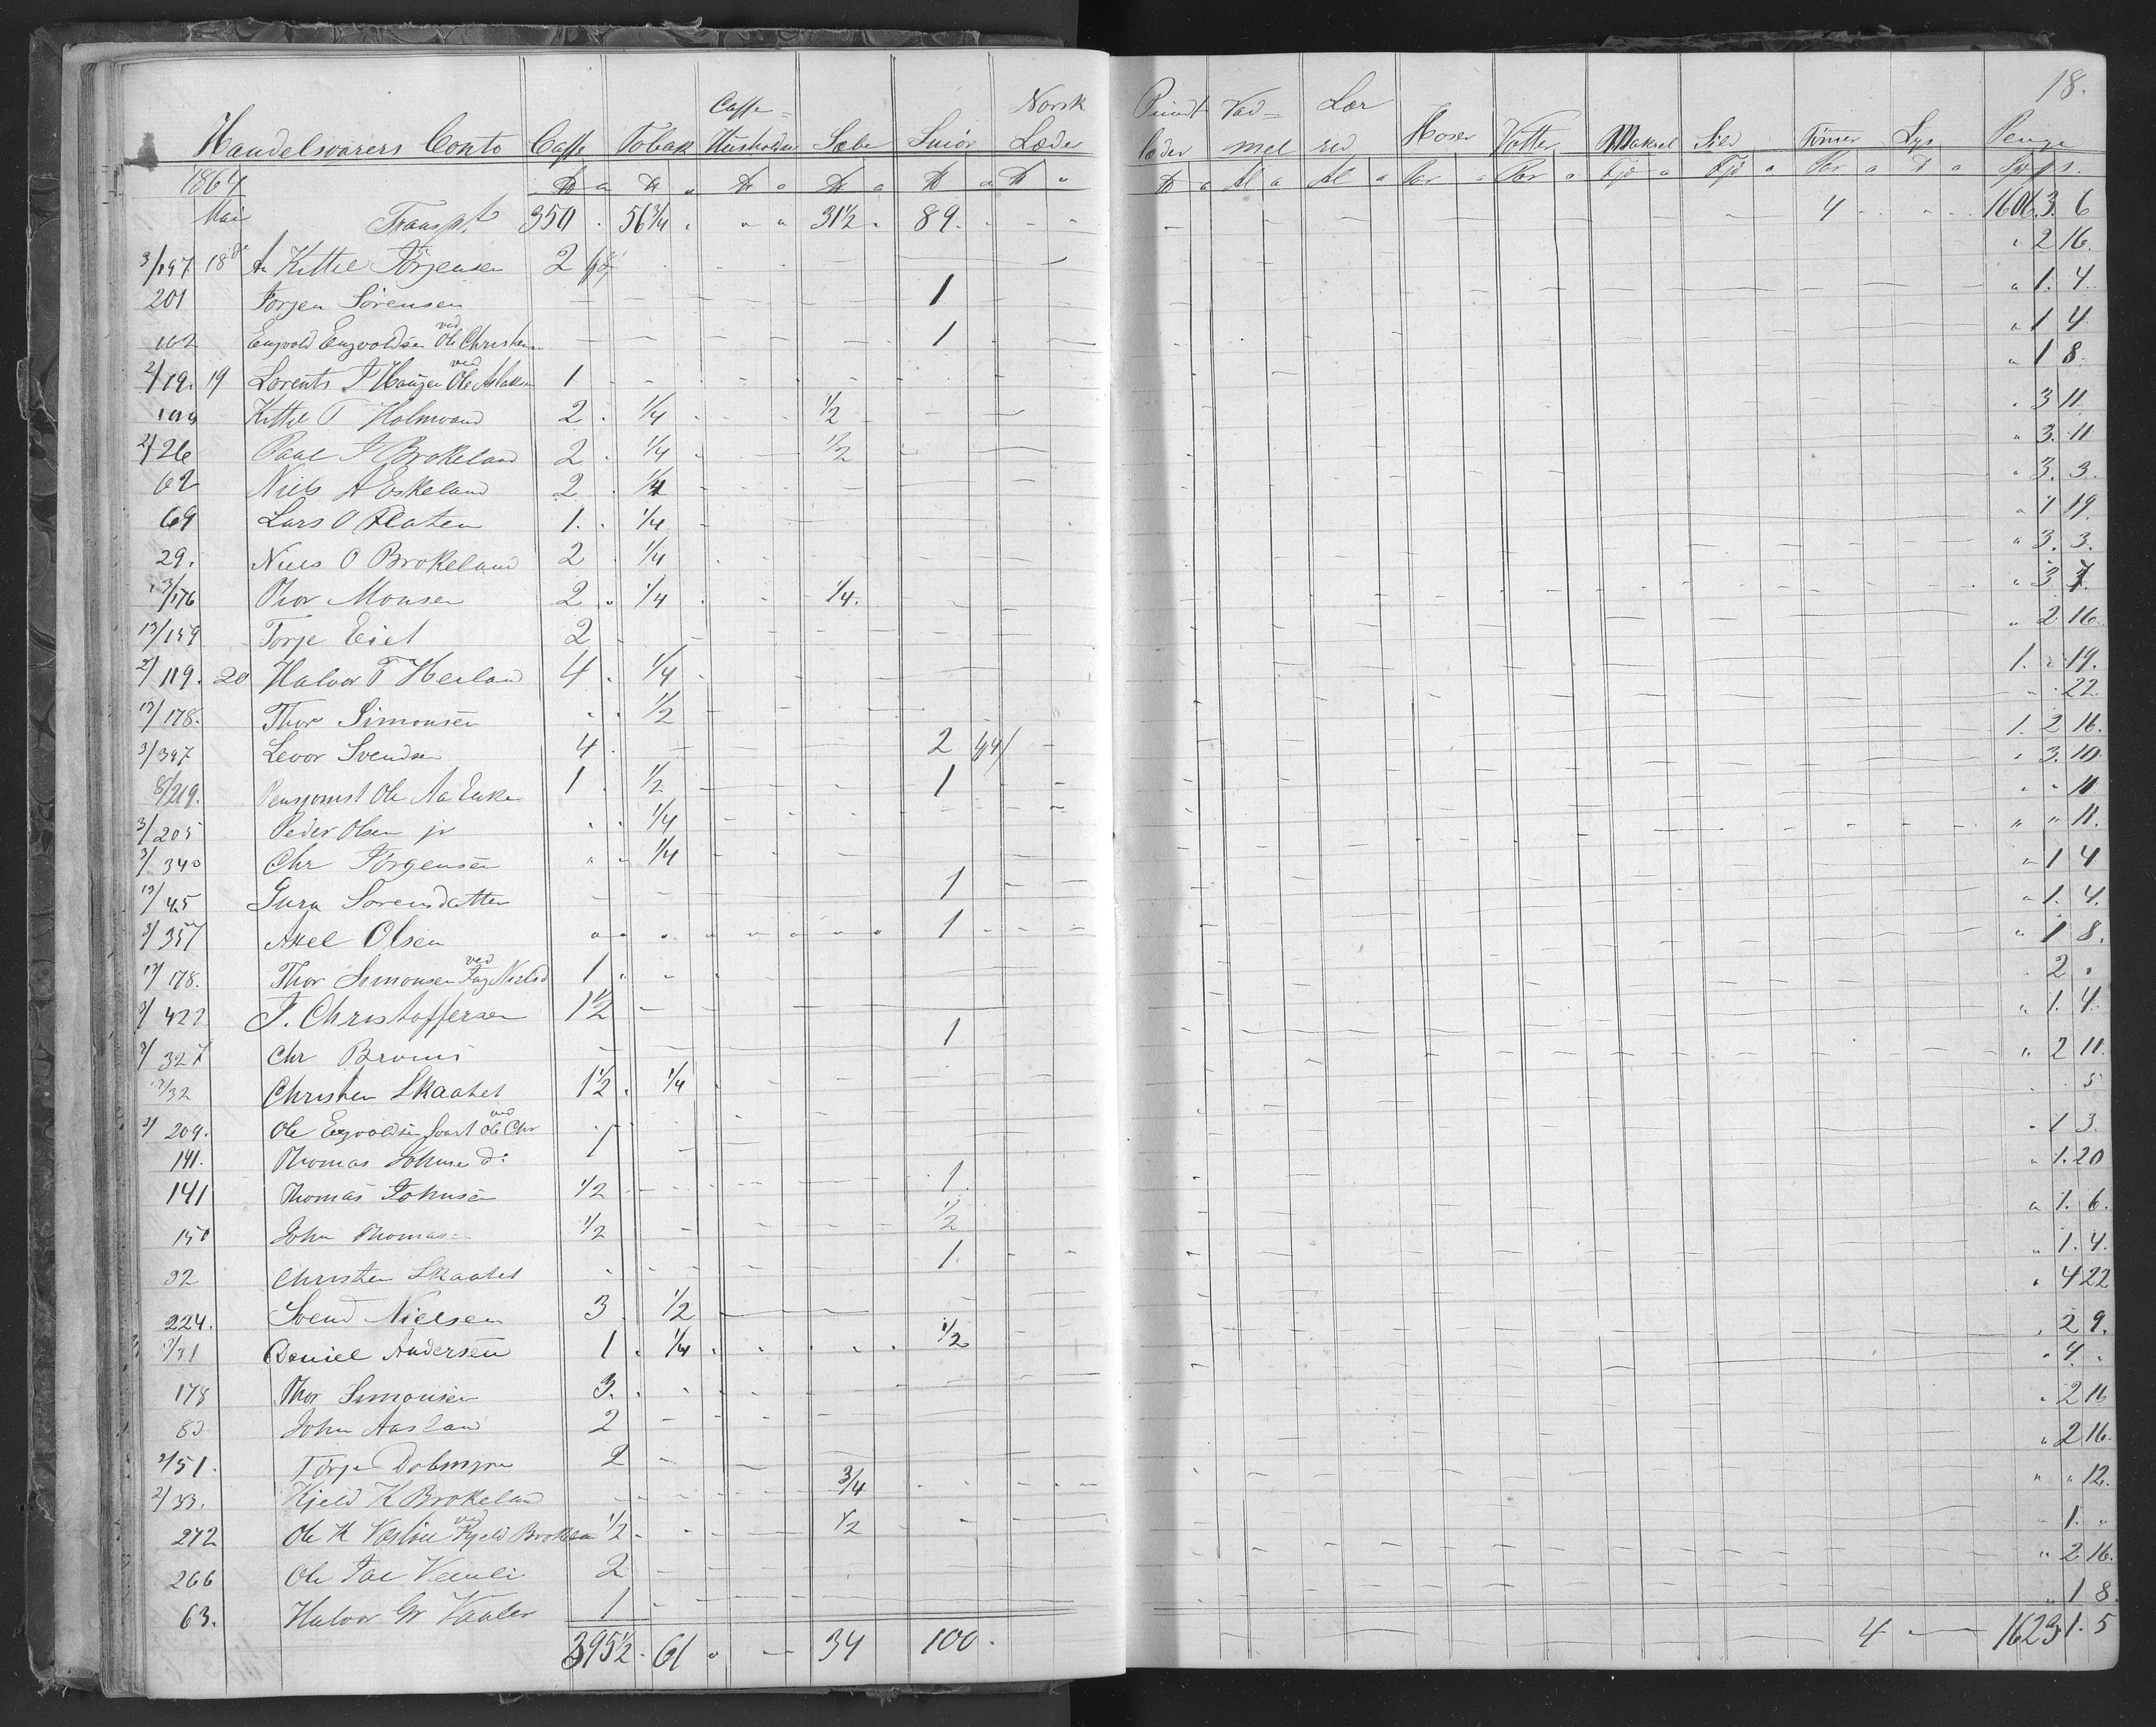 18.
Handelsvarers Conto Caffe Tobak Caffe= Husholdn Sæbe Smör Norsk Læder Pundt læder Vad= mel Lær red Hoser Votter Makrel Sild Tönner Lys Penge
1864
Mai Transpt. 350 56 3/4 31 1/2 89. 4 1606. 3. 6
3/197 18d An Kittel Törjensen 2 2 16.
201 Torjen Sörensen 1 1. 4.
102 Engvold Engvoldsen ved Ole Christens 1 1 4
2/19. 19 Lorents J Haugen ved Ole Aslaksen 1 1 8
Kittel T Holmvand 2 1/4 1/2 3 11
2/26 Paul J Brokeland 2 1/4 1/2 3. 11
62 Niels A Eskeland 2 1/4 3. 3.
69 Lars O Platen 1. 1/4 1 19.
29. Niels O Brokeland 2 1/4 3. 3.
13/176 Thor Monsen 2 1/4 1/4. 3 7.
13/159 Torje Eiet 2 2 16.
2/119. 20 Halvor T Heiland 4 1/4 1. 19.
13/178. Thor Simonsen 1/2 22.
3/397 Levor Svendsen 4 2 1. 2 16.
8/219. Pensjonist Ole Aa Enke 1 1/2 1 3. 10.
3/205 Peder Olsen jr 1/4 11
3/340 Chr Jörgensen 1/4 11.
13/45 Gura Sorensdatter 1 1 4
3/357 Axel Olsen 1 1. 4.
13/178. Thor Simonsen ved Tag Nielsd 1 1 8.
3/422 J. Christoffersen 1 1/2 2
3/327 Chr Bruun 1 1. 4.
13/32 Christen Skaatet 1 1/2 1/4 2 11.
3/209. Ole Engvoldsen Svart ved Ole Chr 5
141. Thomas Johnsen do 1 1 3.
141 Thomas Johnsen 1/2 1 1. 20
150 John Thomas 1/2 1/2 1. 6.
32 Christen Skaatet 1. 1. 4.
224. Svend Nielsen 3 1/2 4 22
3/31 Daniel Andersen 1 1/4 1/2 2 9.
178 Thor Simonsen 3. 4
83 John Aasland 2 2 16
2/51. Törje Dobmyr 2 2 16.
2/33. Kjeld K Brokeland 3/4 12.
272 Ole K ved Kjeld Brokeland 1/2 1/2 1.
266 Ole Tal Vemli 2 2 16.
63. Halvor Gr Vaaler 1 1 8.
395 1/2 61 34 100. 4 1623 1. 5